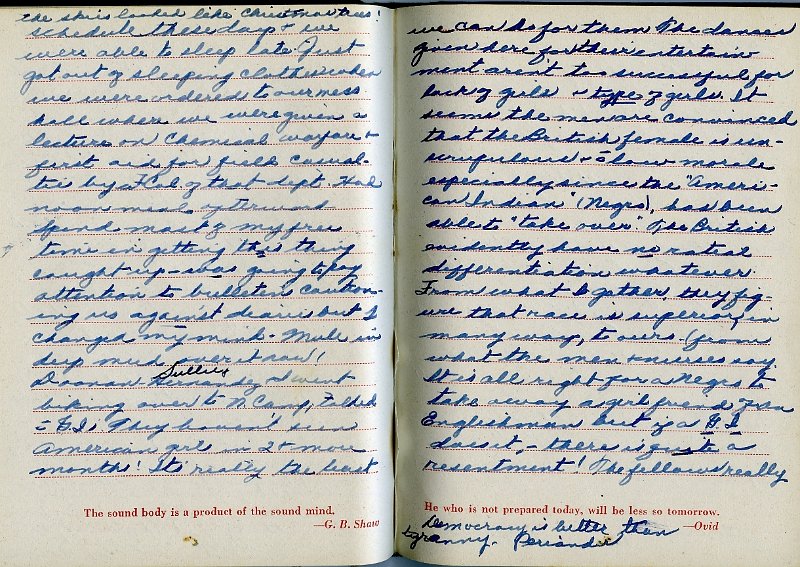 the skies looked like Christmas trees!
schedule these days & we
were able to sleep late. Just
got out of sleeping clothes when
we were ordered to our mess
hall where we were given a
lecture on chemical warfare &
first aid for field casual-
ties by a Col of test dept. Had
noon meal afterwards
Spend most of my free
time in getting this thing
caught up – was going to pay
attention to bulletin caution-
ing us against diaries but I
changed my mind. Mule in
deep mud over it now!
Doonan Sullie & I went
biking over to N Camp, talked
= GIs. They haven't seen
American girls in 2 & more
months! It's really the least
The sound body is a product of the sound mind.
—G. B. Shaw
we can do for them. The dances
given here for their entertain
ment aren't too successful for
lack of girls & type of girls. It
seems the men are convinced
that the British female is un-
scrupulous & = low morale
especially since the "Ameri-
can Indian" (Negro), had been
able to "take over". The British
evidently have no racial
differentiation whatever
From what I gather, they fig-
ure that race is superior, in
many ways, to ours (from
what the men & nurses say.
It is all right for a Negro to
take away a girl friend from
Englishman but if a G I
does it, – there is quite a
resentment! The fellows really
He who is not prepared today, will be less so tomorrow.
—Ovid
Democracy is better than
tyranny. Periander